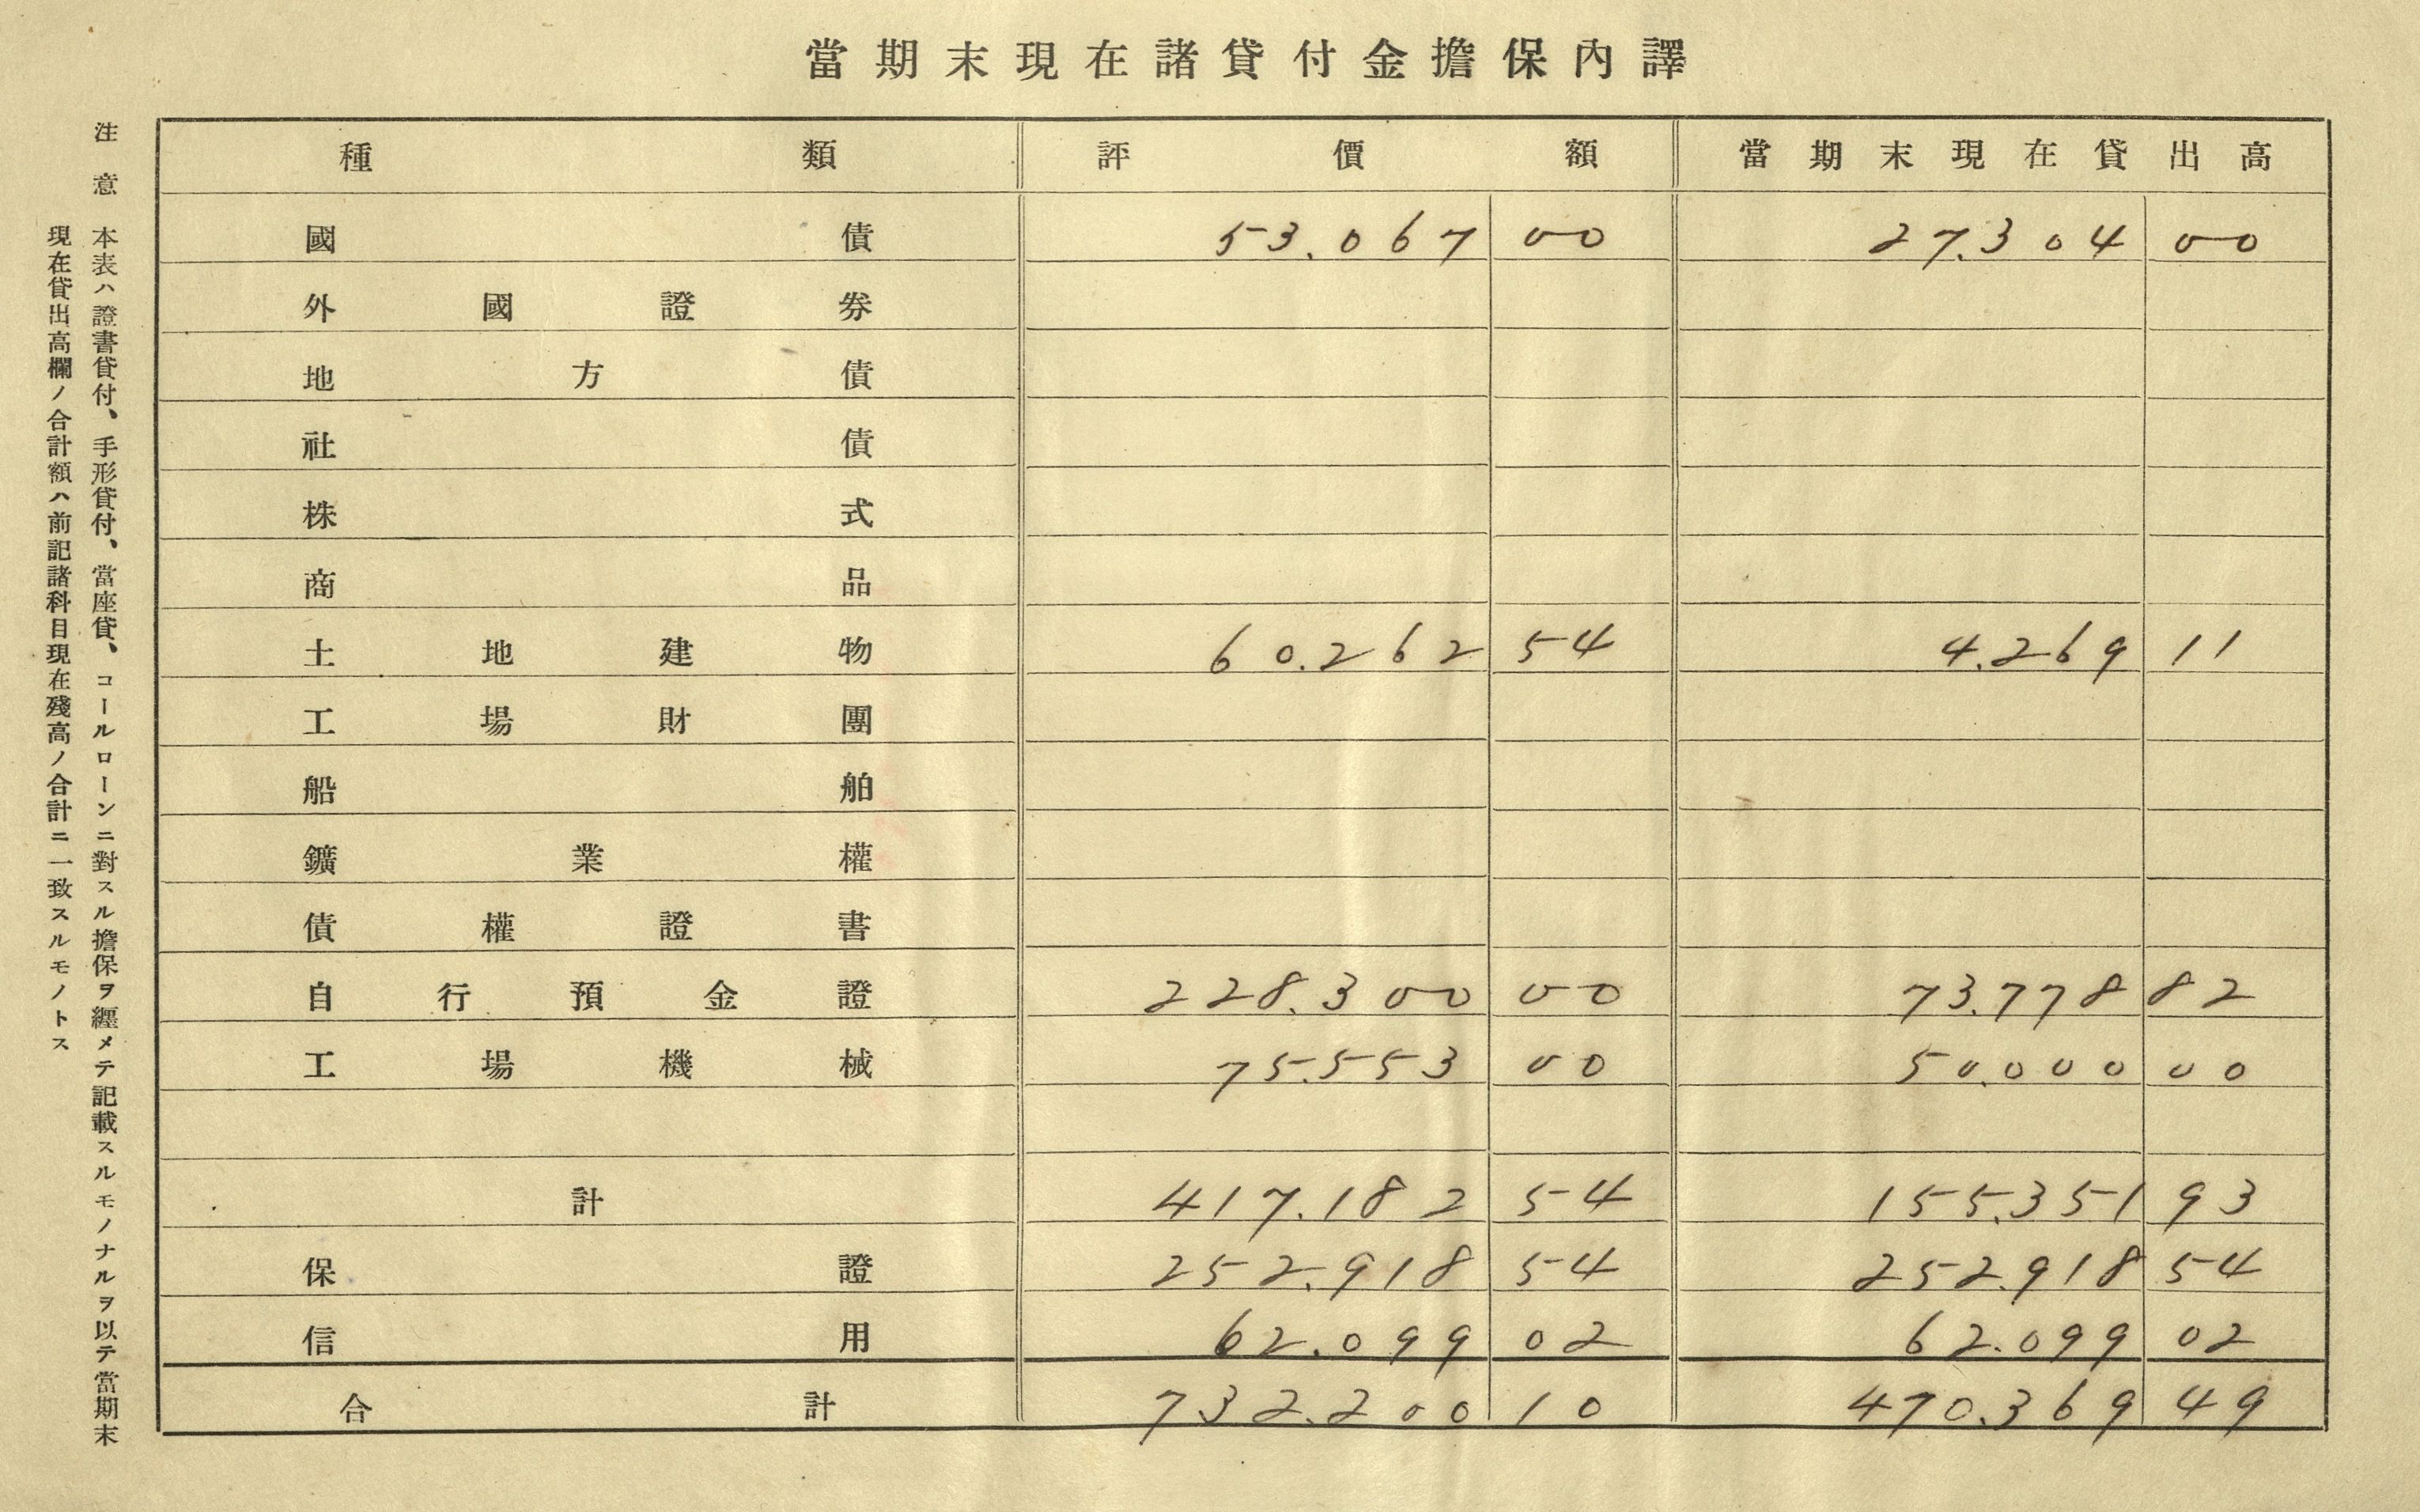 當期末現在諸貸付金擔保內譯
種類 評價額 當期末現在貸出高
國債 53.067 00 27.304 00
外國證券
地方債
社債
株式
商品
土地建物 60.262 54 4.269 11
工場財團
船舶
鑛業權
債權證書
自行預金證 228.300 00 73.778 82
工場機械 75.553 00 50.000 00
計 417.182 54 155.351 93
保證 252.918 54 252.918 54
信用 62.099 02 62.099 02
合計 732.200 10 470.369 49
注意 本表ハ證書貸付、手形貸付、當座貸、コールローンニ對スル擔保ヲ纒メテ記載スルモノナルヲ以テ當期末
現在貸出高欄ノ合計額ハ前記諸科目現在殘高ノ合計ニ一致スルモノトス